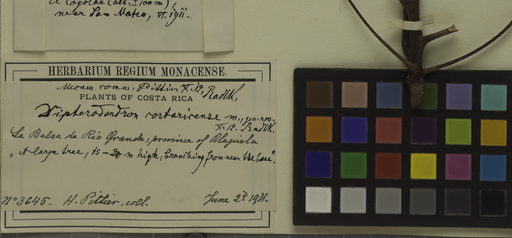 el Cayolar (alt. 1100 m),
near San Mateo, VI. 1911.
HERBARIUM REGIUM MONACENSE.
comm. Pittier X. 12. Radlk.
PLANTS OF COSTA RICA
Dipterodendron costaricense m., gen. nov.
X. 12. Radlk.
La Balsa de Rio Grande, province of Alajuela
„A large tree, 15–20 m high, branching from near the base".
No 3645. H. Pittier, coll. June 2d 1911.